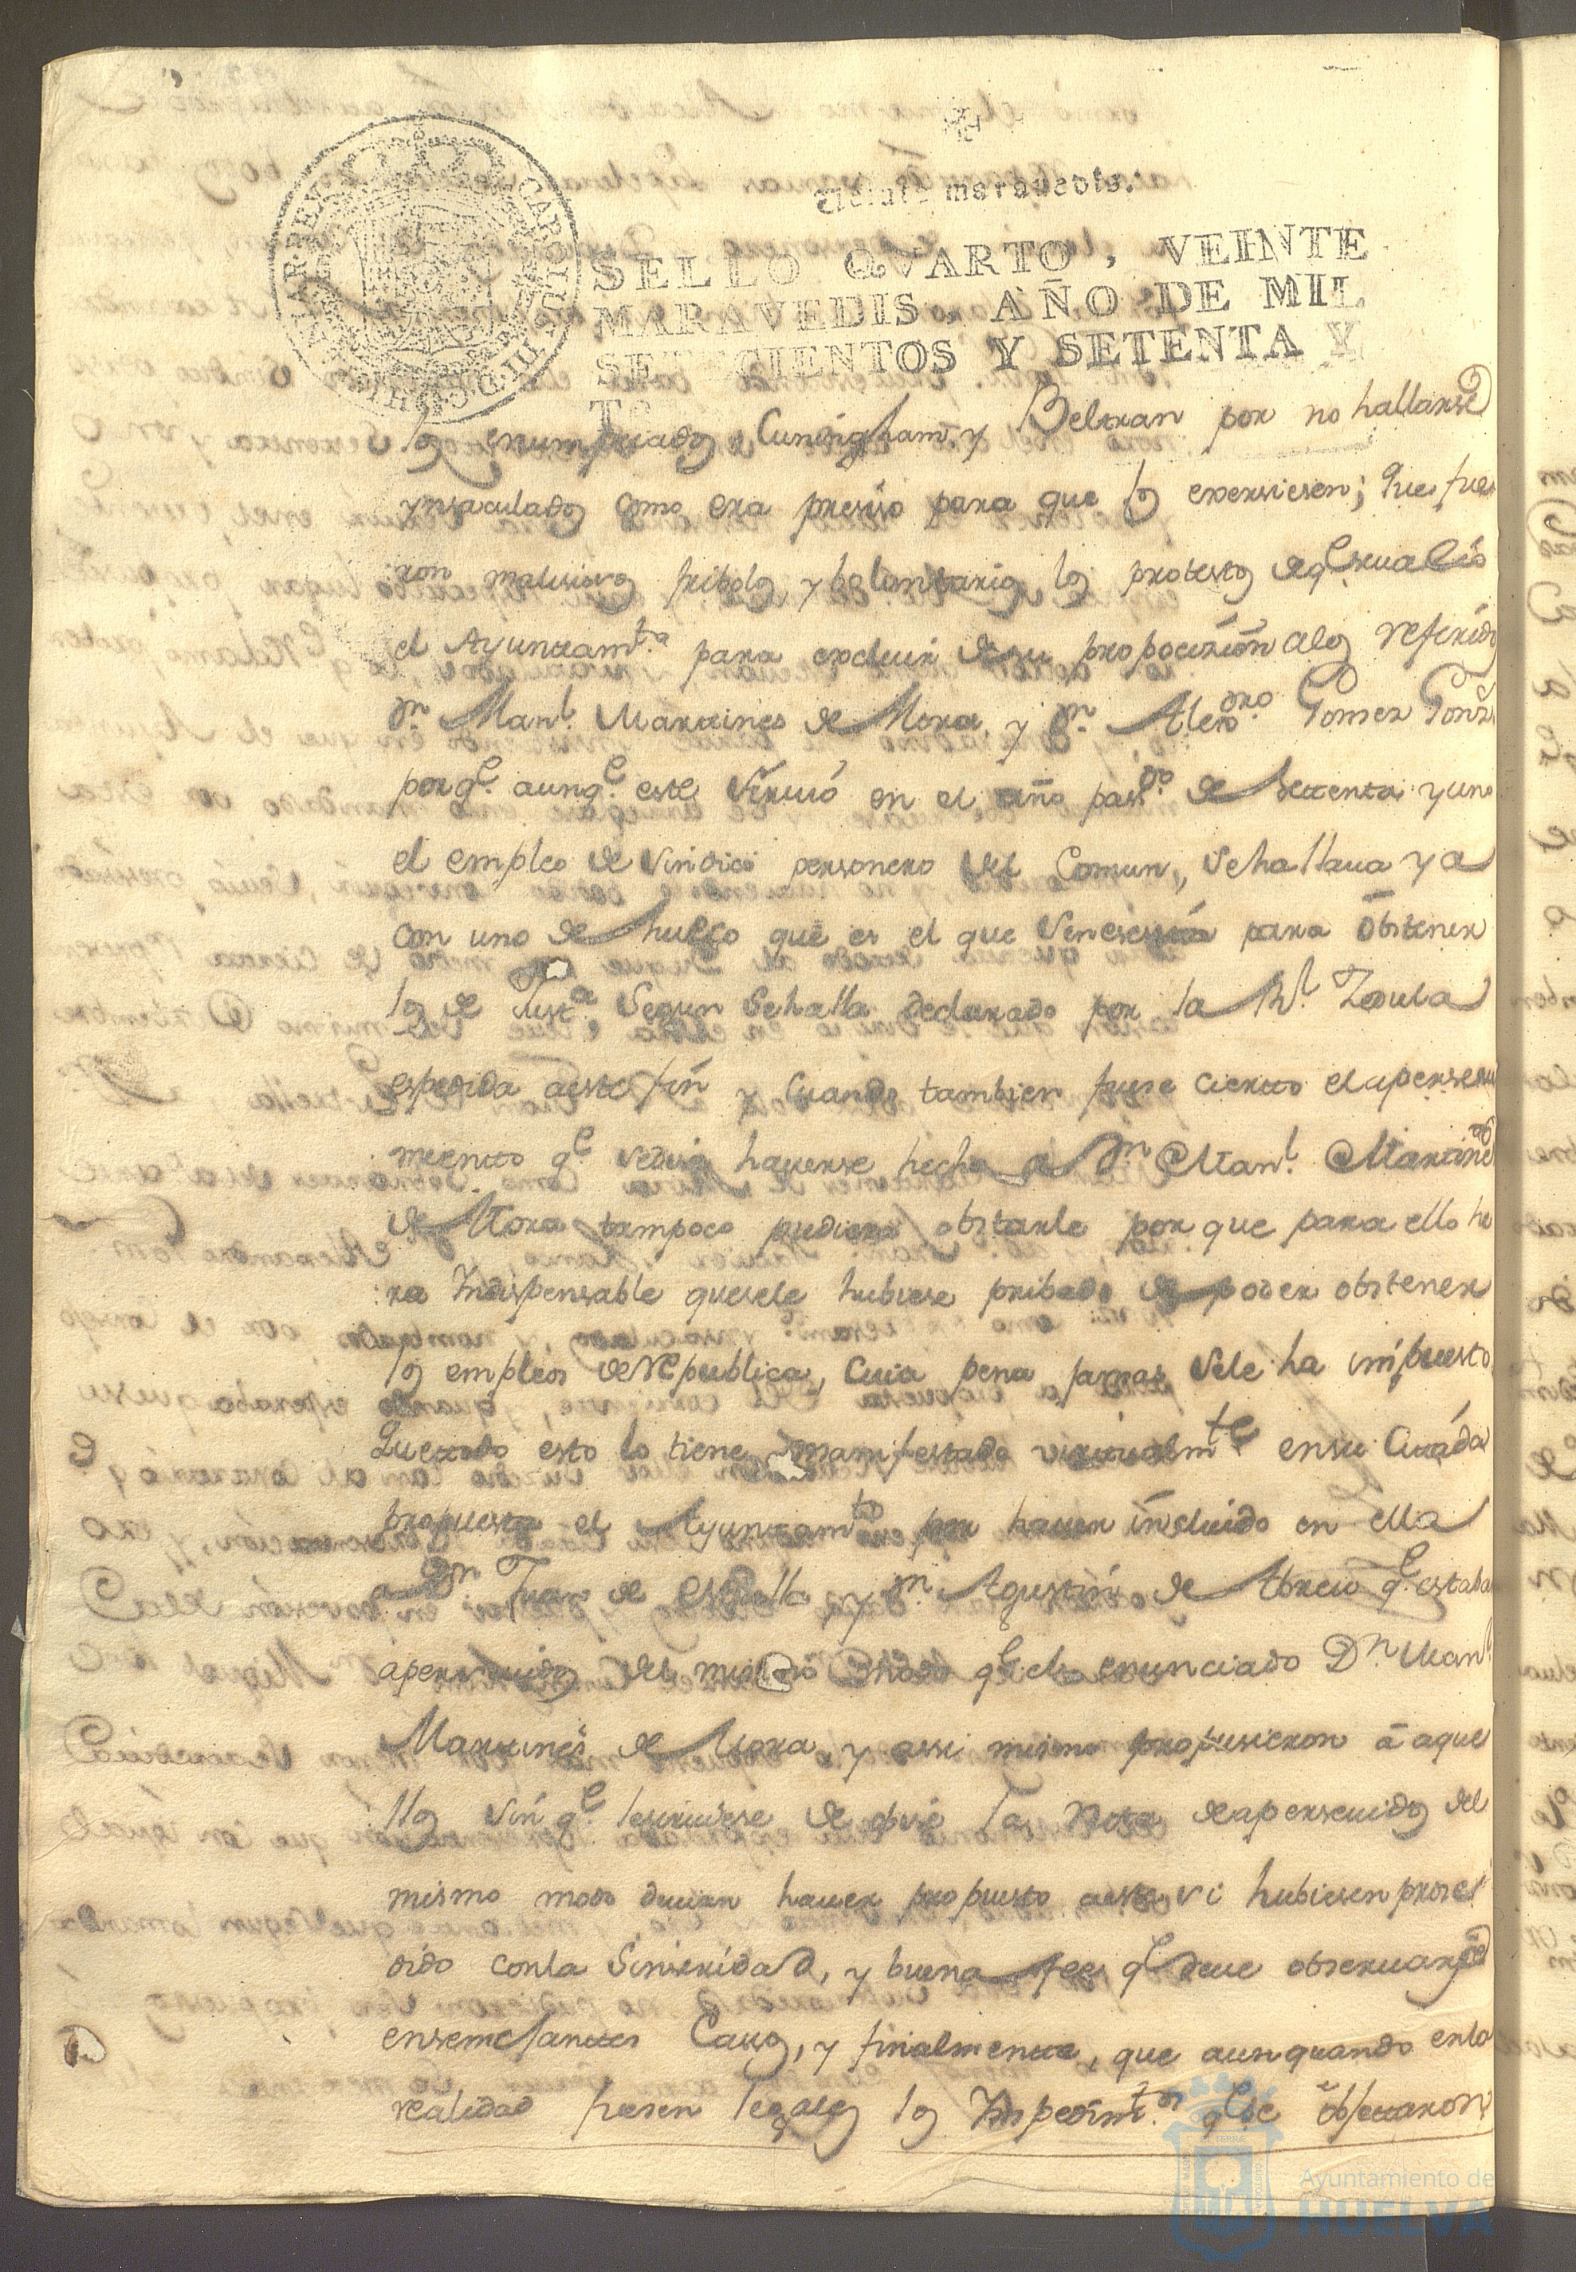 Veinte maravedis.
SELLO QVARTO, VEINTE
MARAVEDIS, AÑO DE MIL
SETECIENTOS Y SETENTA Y
los enumpciados Cuningham, y Beltran por no hallarse
ynsaculados como era presiso para que los exersiesen; que fue
ron malisiosos fribolos y boluntarios los protestos de qe. se ualió
el Ayuntamto. para excluir de su propocision a los referidos
Dn. Manl. Martines de Mora, y Dn. Alexdro. Gomes Gonz
porqe. aunqe. este siruió en el año pasdo. de setenta y uno
el empleo de sindico personero del Comun, se hallaua ya
con uno de hueco que es el que se nesesita para obtener
los de Justa. segun se halla declarado por la Rl. Zedula
espedida a este fin y cuando tambien fuese cierto el aperseui
miento qe. se dise hauerse hecho a Dn Manl. Martines
de Mora tampoco pudiera obstarle por que para ello he
ra Indispensable que se le hubiese pribado de poder obtener
los empleos de Republica, cuia pena jamas se le ha impuesto
que todo esto lo tiene manifestado virtualmte en su citada
propuesta el Ayuntamto por hauer incluido en ella
a Dn Juan de Estrella y Dn. Agustin de Abreu qe. estaba
aperseuidos del mismo modo qe el enunciado Dn Manl
Martines de Mora, y assi mismo propusieron á aque
llos sin qe. les siruiese de obise la nota de aperseuidos del
mismo modo deuian hauer propuesto a este si hubiesen prose
dido con la sinseridad, y buena fee qe deue obseruarse
en semejantes Casos, y finalmente, que aun quando en la
realidad fuesen legales los Impedimtos. qe se objetaron
Ayuntamiento de
HUELVA